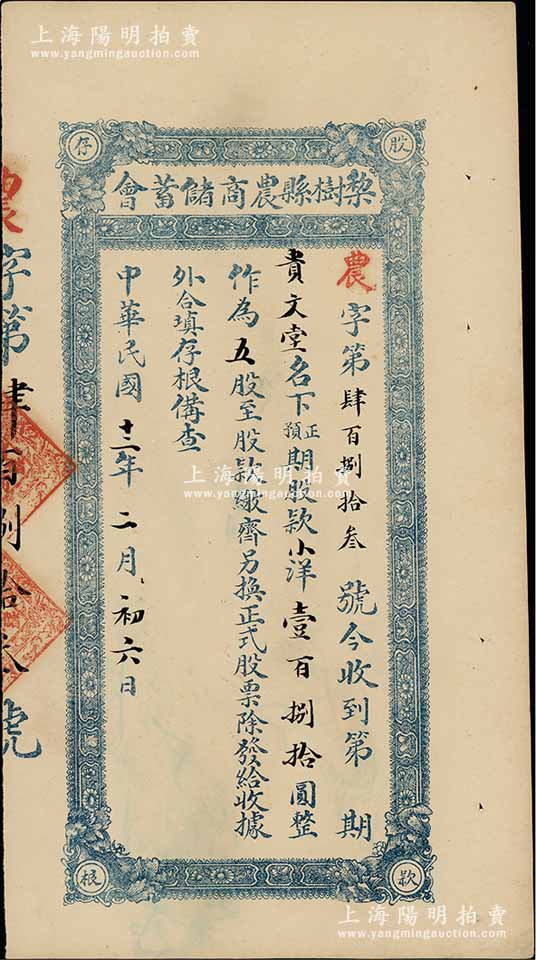 上海陽明拍賣
www.yangmingauction.com
股款存根
梨樹縣農商儲蓄會
農字第肆百捌拾叁號今收到第　期
貴文堂名下正預期股款小洋壹百捌拾圓整
作為五股至股款繳齊另換正式股票除發給收據
外合填存根備查
中華民國十三年二月初六日
農字第肆百捌拾叁號
上海陽明拍賣
www.yangmingauction.com
上海陽明拍賣
www.yangmingauction.com